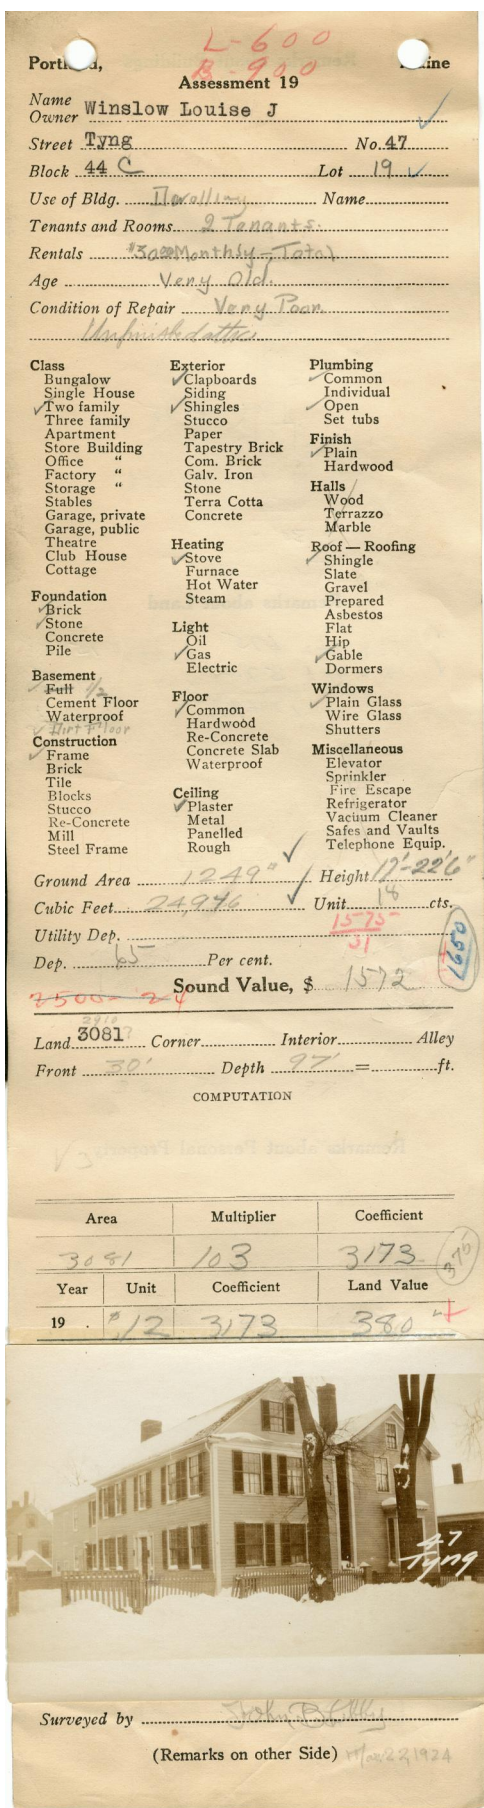 L-600
B-900
Portland, Maine
Assessment 19
Name
Owner Winslow Louise J
Street Tyng No. 47
Block 44 C Lot 19
Use of Bldg. Dwelling Name
Tenants and Rooms 2 Tenants.
Rentals $30.00 Monthly - Total
Age Very Old.
Condition of Repair Very Poor.
Unfinished attic
Class
Bungalow
Single House
✓Two family
Three family
Apartment
Store Building
Office "
Factory "
Storage "
Stables
Garage, private
Garage, public
Theatre
Club House
Cottage
Foundation
✓Brick
✓Stone
Concrete
Pile
Basement
Full 1/2
Cement Floor
Waterproof
✓ Dirt Floor
Construction
✓Frame
Brick
Tile
Blocks
Stucco
Re-Concrete
Mill
Steel Frame
Exterior
✓Clapboards
Siding
✓Shingles
Stucco
Paper
Tapestry Brick
Com. Brick
Galv. Iron
Stone
Terra Cotta
Concrete
Heating
✓Stove
Furnace
Hot Water
Steam
Light
Oil
✓Gas
Electric
Floor
✓Common
Hardwood
Re-Concrete
Concrete Slab
Waterproof
Ceiling
✓Plaster
Metal
Panelled
Rough
Plumbing
✓Common
Individual
✓Open
Set tubs
Finish
✓Plain
Hardwood
Halls
Wood
Terrazzo
Marble
Roof — Roofing
✓Shingle
Slate
Gravel
Prepared
Asbestos
Flat
Hip
✓Gable
Dormers
Windows
✓Plain Glass
Wire Glass
Shutters
Miscellaneous
Elevator
Sprinkler
Fire Escape
Refrigerator
Vacuum Cleaner
Safes and Vaults
Telephone Equip.
Ground Area 1249 Height 17'-22'6"
Cubic Feet 24,946 Unit 18 cts.
Utility Dep. 1575
31
Dep. 65 Per cent.
Sound Value, $ 1572
2500 - 24
2910
Land 3081 Corner Interior Alley
Front 30' Depth 97' = ft.
COMPUTATION
Area Multiplier Coefficient
3081 103 3173
375
Year Unit Coefficient Land Value
19 . $.12 3173 380
47
Tyng
Surveyed by
(Remarks on other Side) Mar 22, 1924